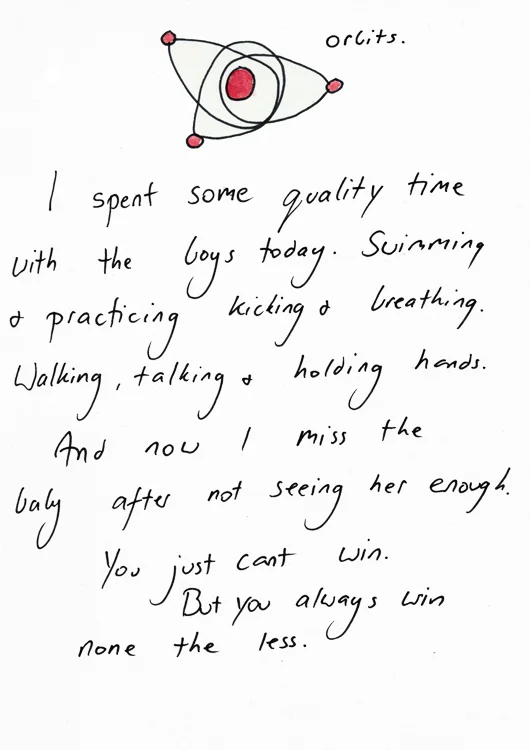 orbits.
I spent some quality time
with the boys today. Swimming
& practicing kicking & breathing.
Walking, talking & holding hands.
And now I miss the
baby after not seeing her enough.
You just cant win.
But you always win
none the less.